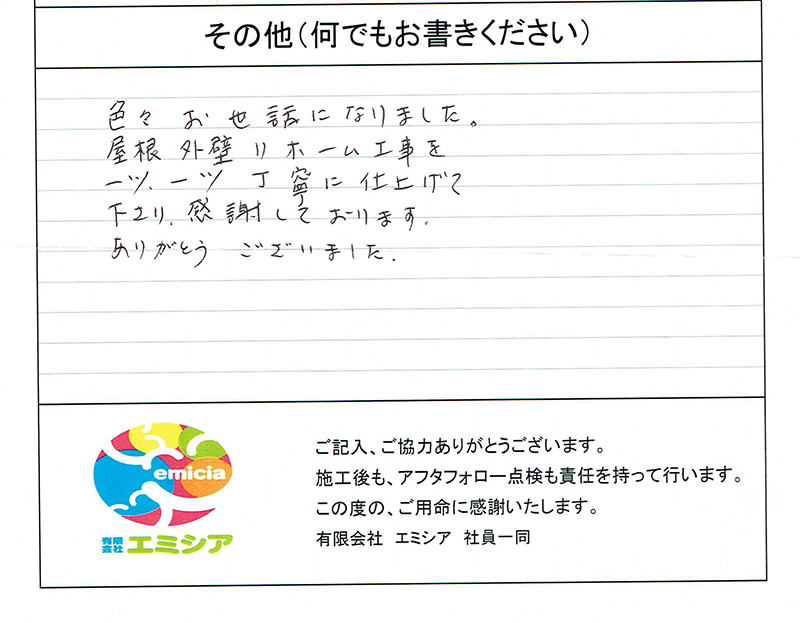 その他(何でもお書きください)
色々 お世話になりました。
屋根 外壁 リホーム工事を
一ツ、一ツ 丁寧に仕上げて
下さり、感謝しております。
ありがとう ございました.
emicia
有限会社 エミシア
ご記入、ご協力ありがとうございます。
施工後も、アフタフォロー点検も責任を持って行います。
この度の、ご用命に感謝いたします。
有限会社 エミシア 社員一同